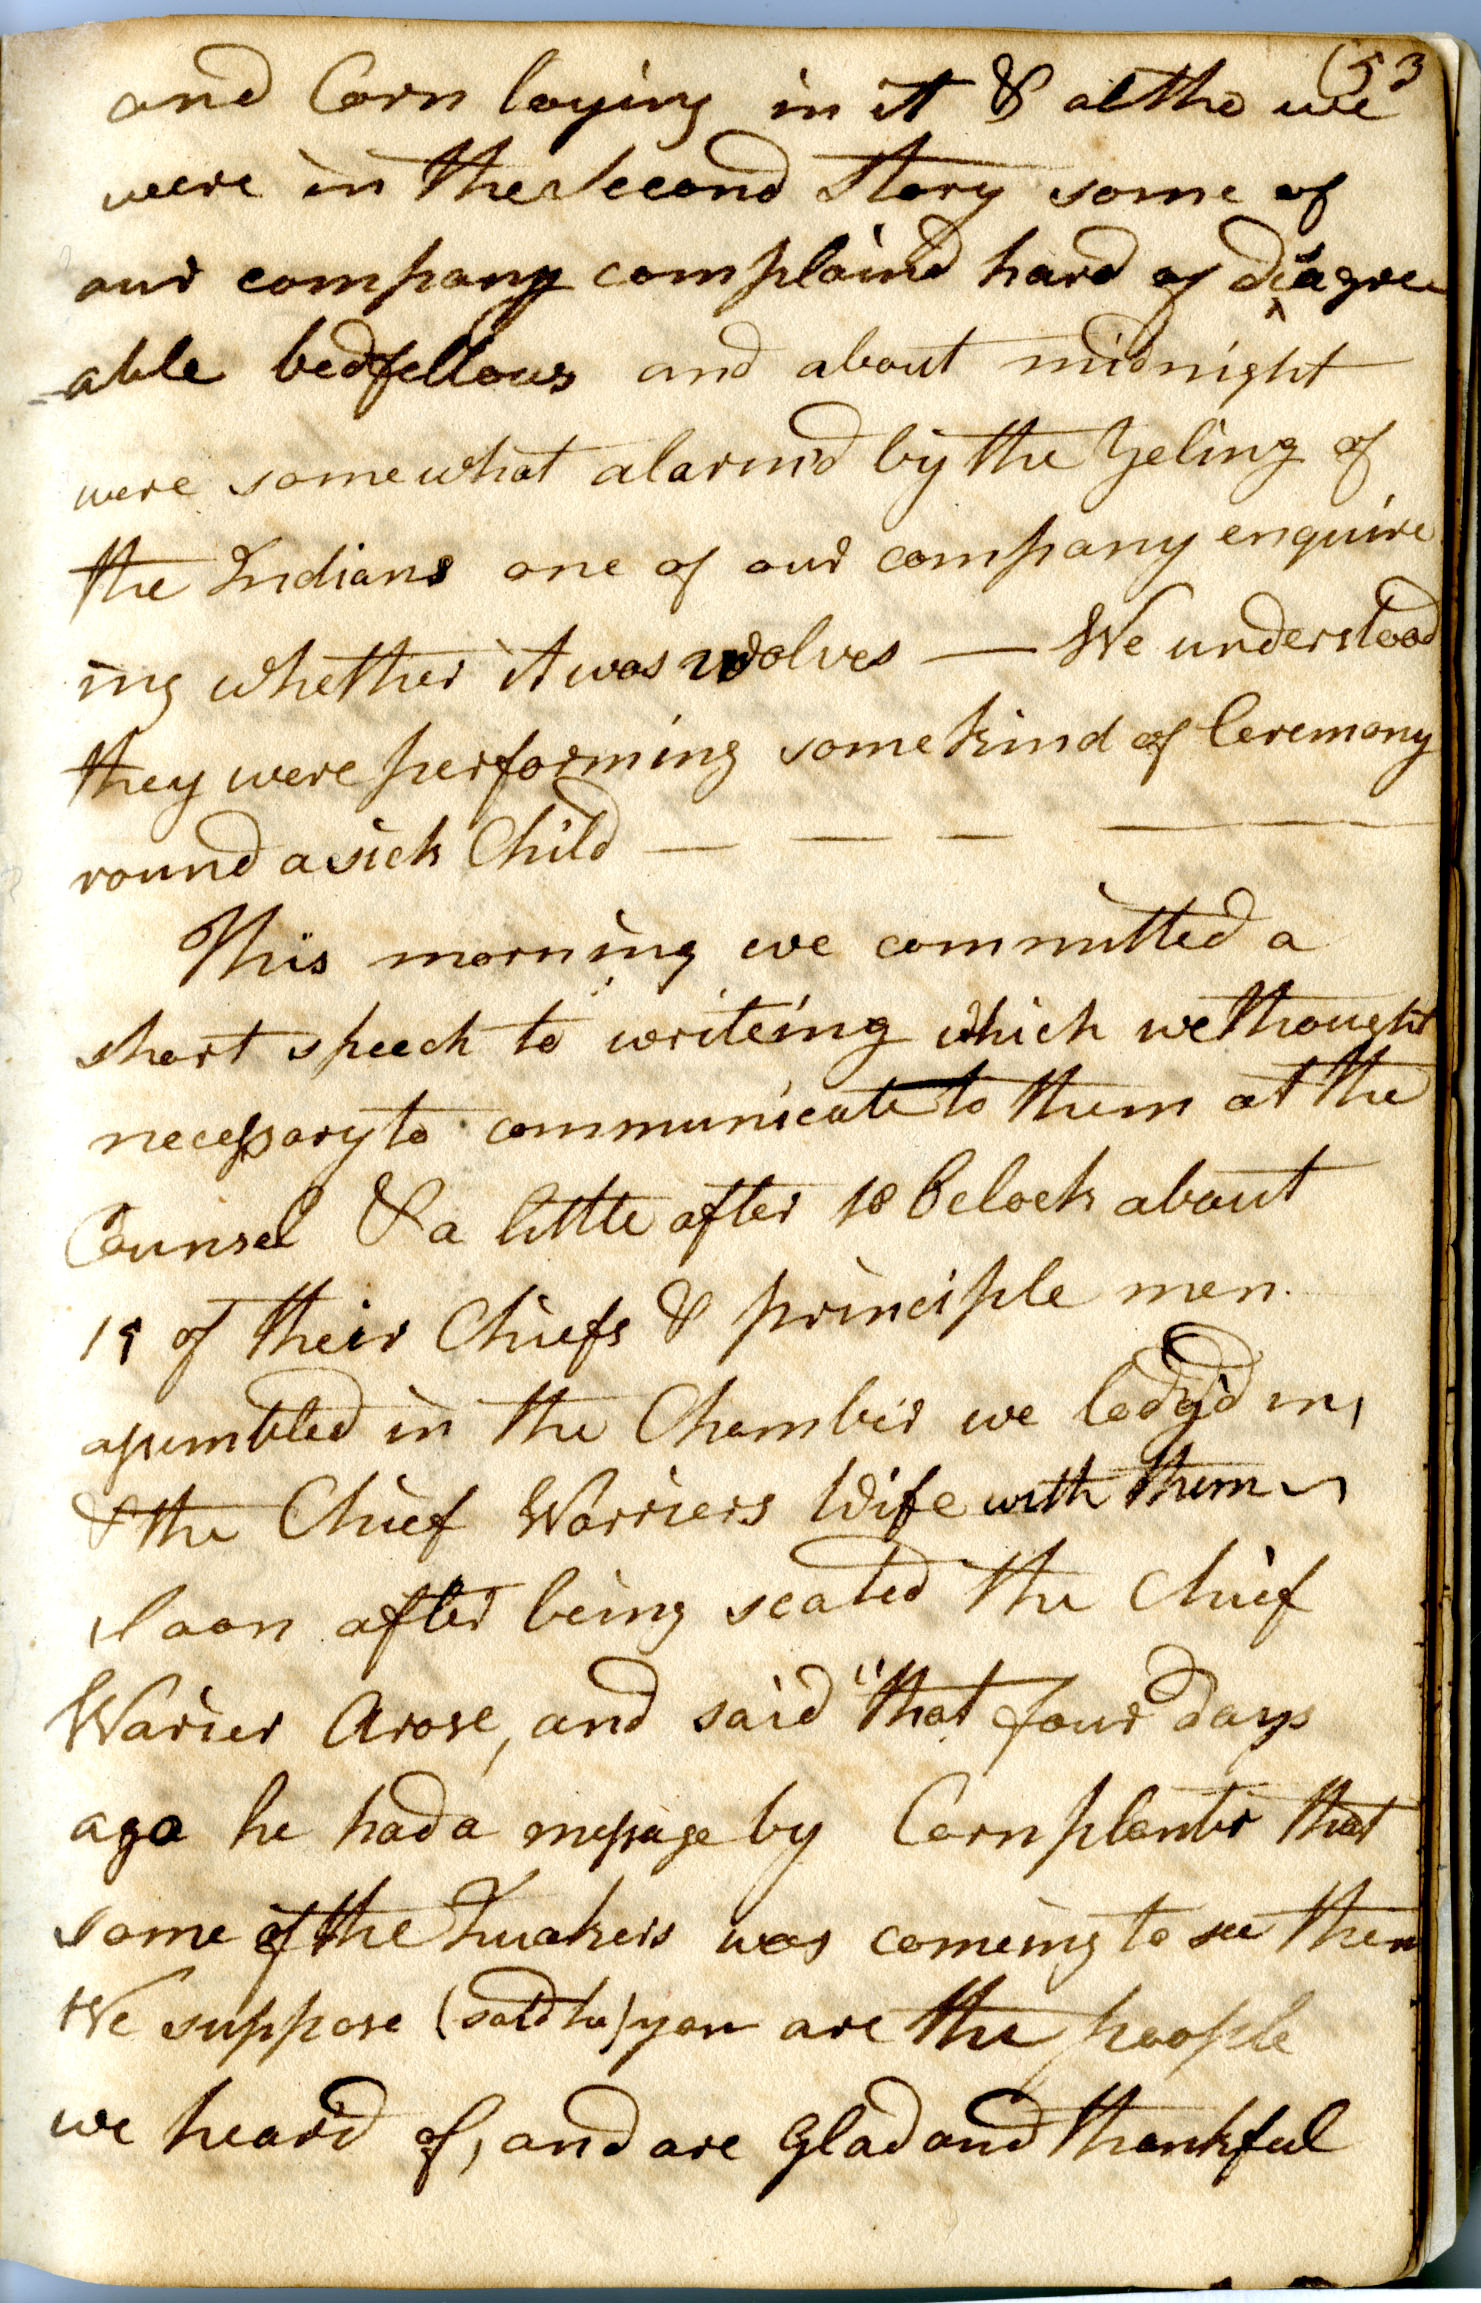 (53
and Corn laying in it & altho we
were in the second Story some of
our company complaind hard of disagree
able bedfellows and about midnight
were somewhat alarm'd by the Yeling of
the Indians one of our company enquire
ing whether it was wolves — We understood
they were performing some kind of Ceremony
round a sick Child — — — —
This morning we committed a
short speech to writeing which we thought
necessary to communicate to them at the
Counsel & a little after 10 Oclock about
15 of their Chiefs & principle men
assembled in the Chamber we lodg'd in,
& the Chief Warriers Wife with them ~
Soon after being seated the Chief
Warier Arose, and said "that four days
ago he had a message by Cornplanter that
some of the Quakers was comeing to see them
We suppose (said he) you are the people
we heard of, and are Glad and thankful